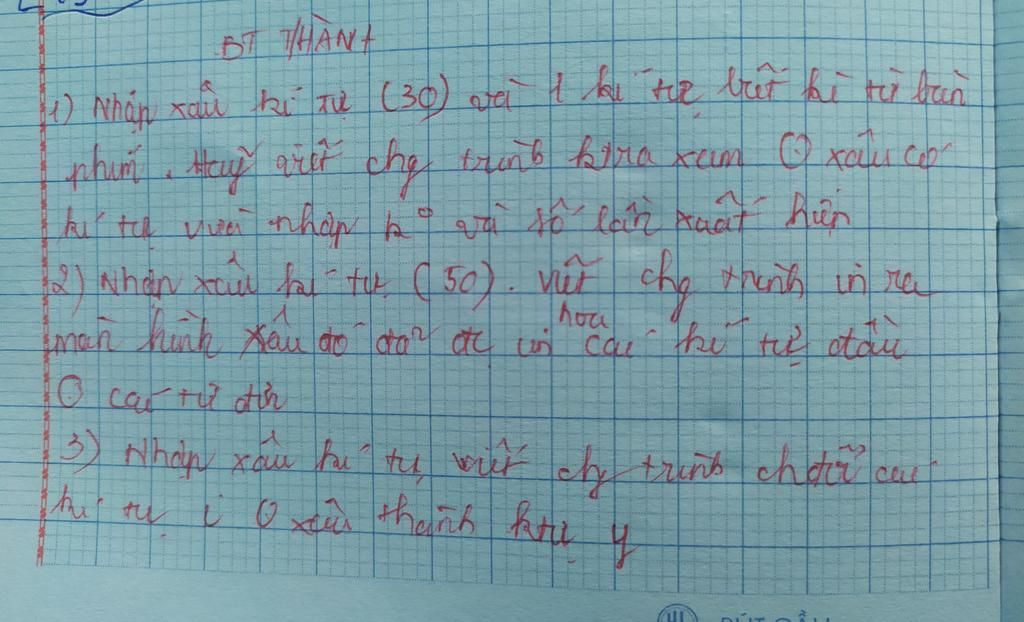 BT THÀNH
1) Nhập xâu kí tự (30) và 1 kí tự bất kì từ bàn
phím. Hãy viết chg trình ktra xem O xâu có
kí tự vừa nhập ko và số lần xuất hiện
2) Nhập xâu kí tự (50). viết chg trình in ra
màn hình xâu đó đã đc in hoa các kí tự đầu
O các từ đơn
3) Nhập xâu kí tự viết chg trình chđổi các
kí tự i O xâu thành ktự y